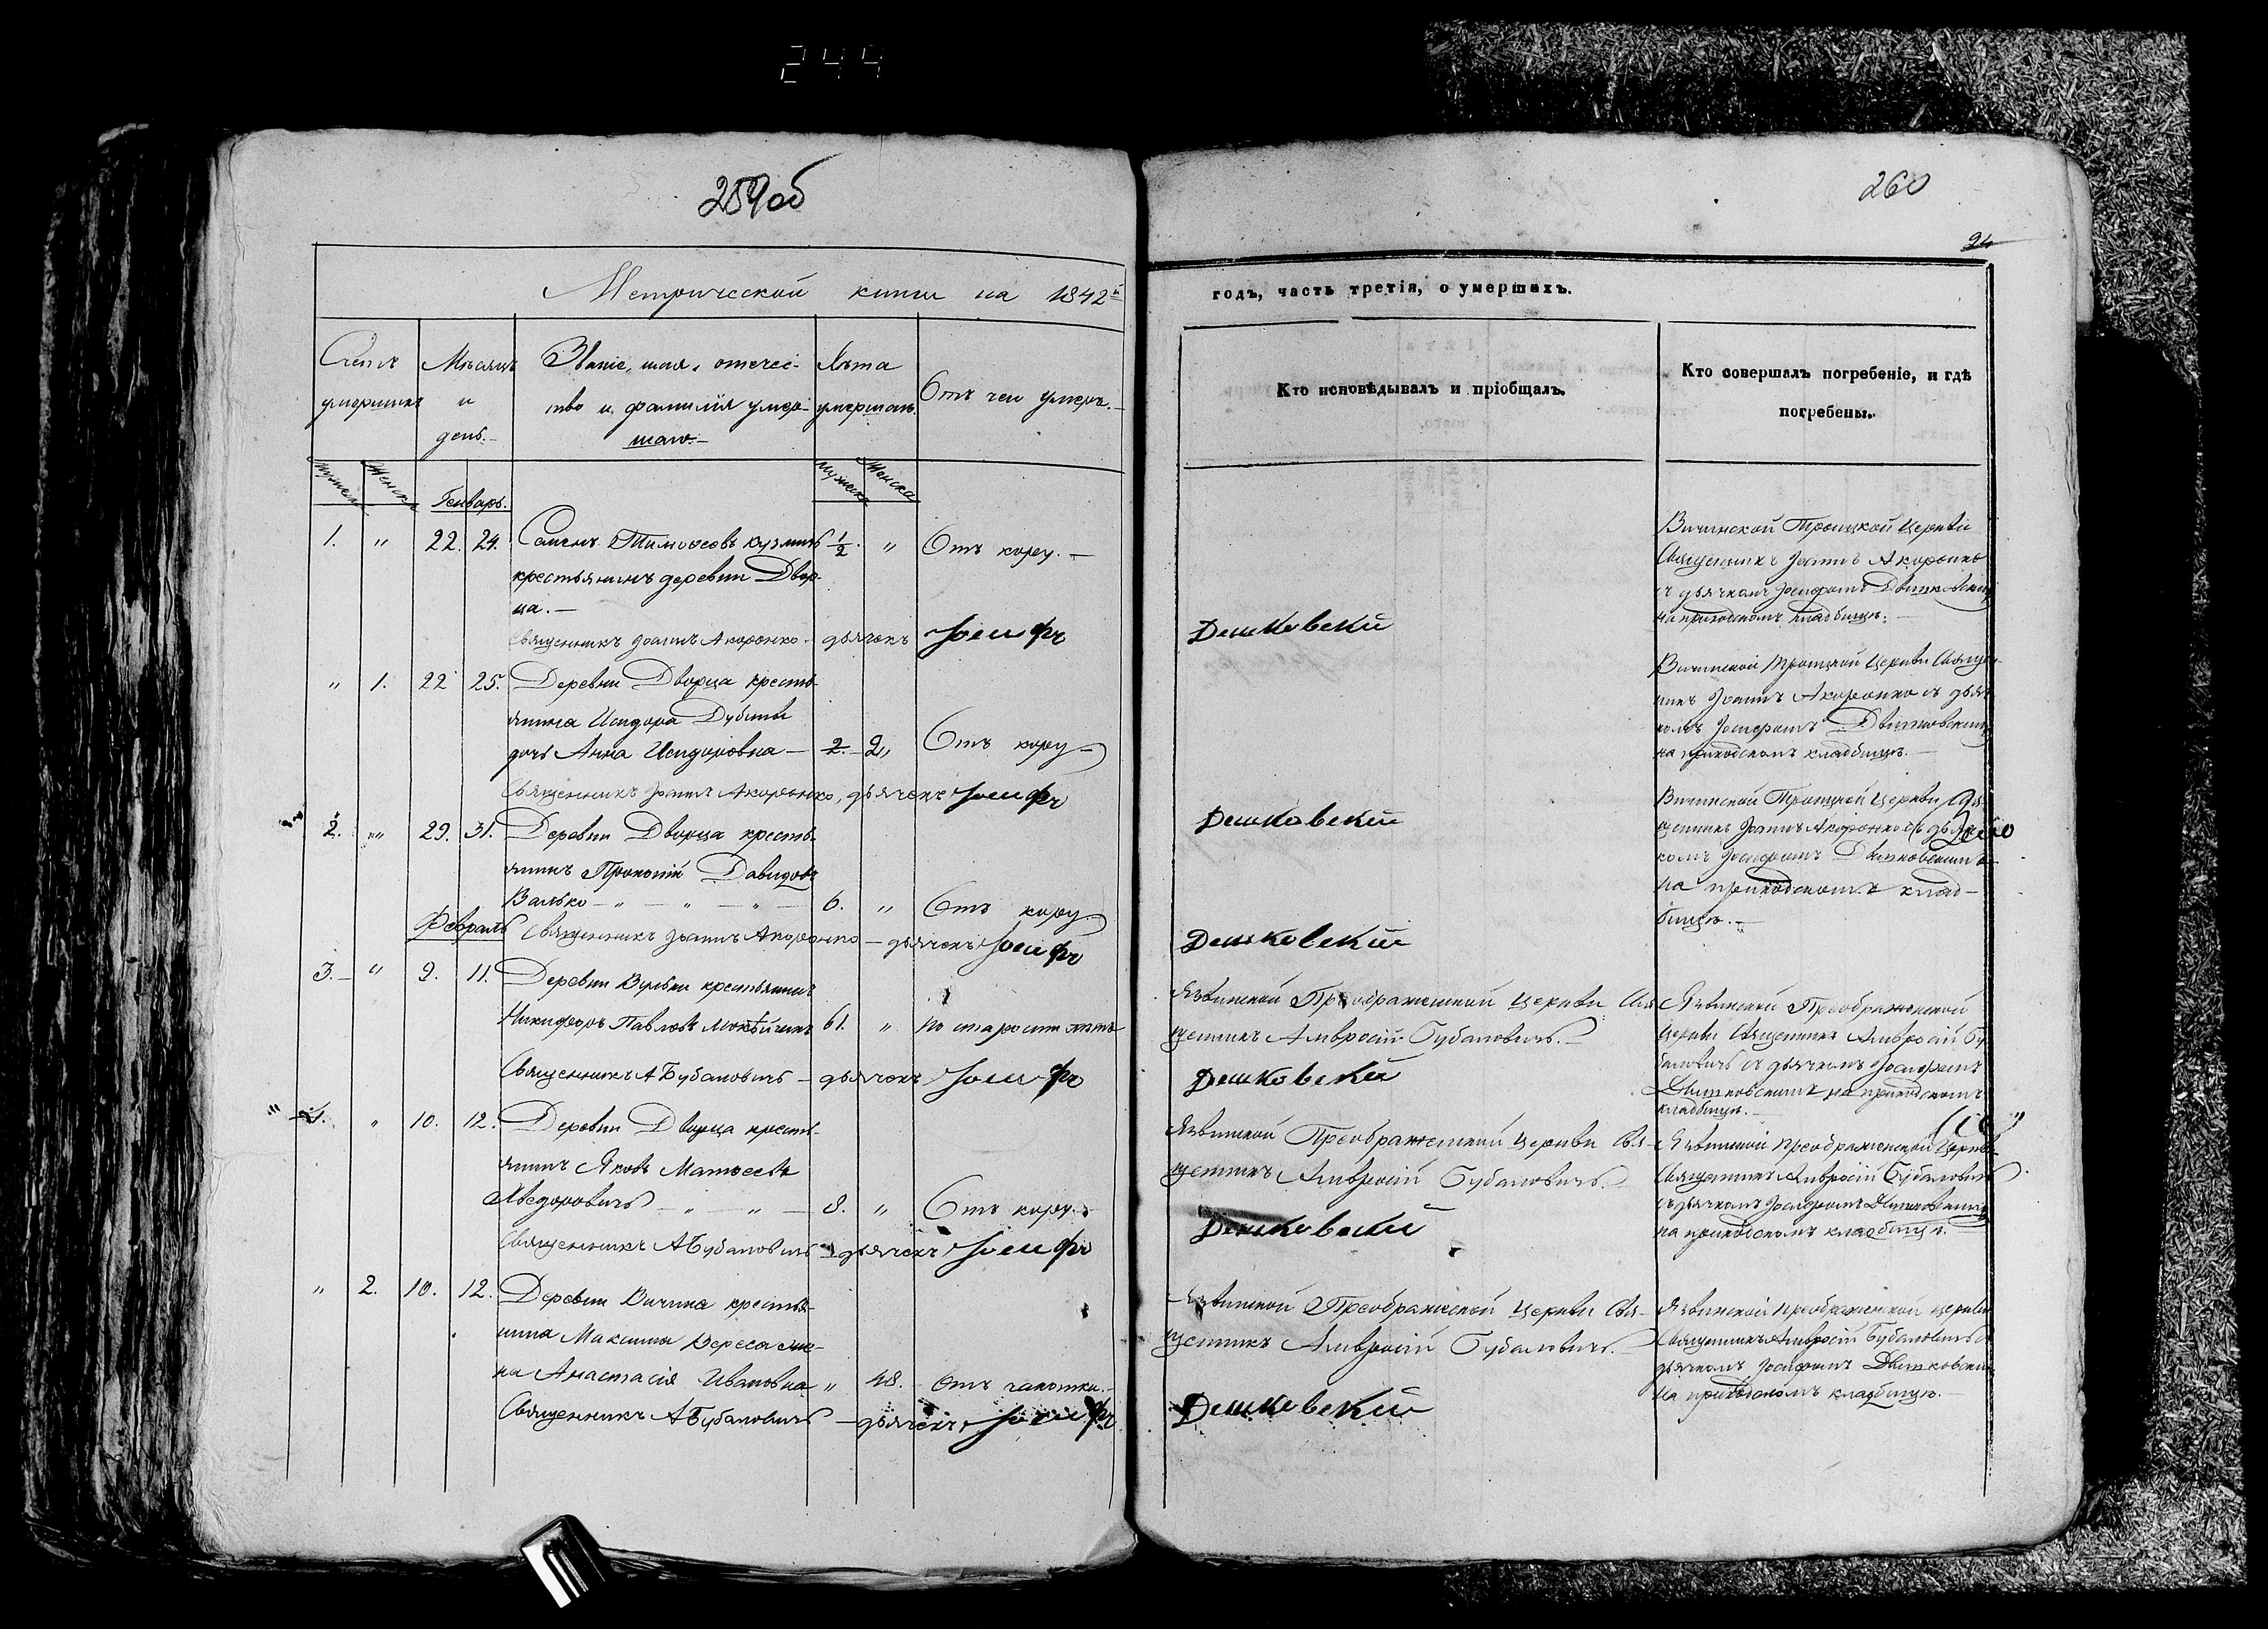 244
259об
Метрической книги на 1842й
Счетъ умершихъ
Мѣсяцъ и день.
Званіе, имя, отечес-
тво и фамилія умер-
шаго.
Лѣта умершаго.
Отъ чего умеръ.
Мужеска Женска
Мужеска Женска
Генварь.
1. " 22. 24. Саменъ Тимоѳеевъ Кузмичъ 1/2. " Отъ кору.
крестьянинъ деревни Двор-
ца.
Священникъ Іоаннъ Акоронко дьячекъ Іосифъ
" 1. 22 25. Деревни Дворца кресть-
янина Исидора Дубины
дочь Анна Исидоровна 2. 2 " Отъ кору
Священникъ Іоаннъ Акоронко, дьячекъ Іосифъ
2. " 29. 31. Деревни Дворца кресть-
янинъ Прокопій Давидовъ
Валько 6. " Отъ кору
Февраль
Священникъ Іоаннъ Акоронко дьячекъ Іосифъ
3. " 9. 11. Деревни Вульки крестьянинъ
Никифоръ Павловъ 61. " по старости лѣтъ
Священникъ А Бубановичъ дьячекъ Іосифъ
4. " 10. 12. Деревни Дворца кресть-
янинъ Яковъ Матвеевъ
Хведоровичъ 8. " Отъ кору.
Священникъ А Бубановичъ дьячекъ Іосифъ
" 2. 10. 12. Деревни Вичина крестья-
нина Максима Вереса же-
на Анастасія Ивановна " 48. Отъ чахотки.
Священникъ А Бубановичъ дьячекъ Іосифъ
260
94
годъ, часть третія, о умершихъ.
Кто исповѣдывалъ и пріобщалъ.
Кто совершалъ погребеніе, и гдѣ
погребены.
Вичинской Троицкой Церкви
Священникъ Іоаннъ Акоронко
съ дьячкомъ Іосифомъ Дешковскимъ
на приходскомъ кладбищѣ.
Дешковскій
Вичинской Троицкой Церкви Священ-
никъ Іоаннъ Акоронко съ дьяч-
комъ Іосифомъ Дешковскимъ
на приходскомъ кладбищѣ.
Дешковскій
Вичинской Троицкой Церкви Свя-
щенникъ Іоаннъ Акоронко съ дьяч-
комъ Іосифомъ Дешковскимъ
на приходскомъ клад-
бищѣ.
Дешковскій
Язвинской Преображенской Церкви Свя-
щенникъ Амвросій Бубановичъ.
Язвинской Преображенской
Церкви Священникъ Амвросій Бу-
бановичъ съ дьячкомъ Іосифомъ
Дешковскимъ на приходскомъ
кладбищѣ.
Дешковскій
Язвинской Преображенской Церкви Свя-
щенникъ Амвросій Бубановичъ.
Язвинской Преображенской Церкви
Священникъ Амвросій Бубановичъ
съ дьячкомъ Іосифомъ Дешковскимъ
на приходскомъ кладбищѣ.
Дешковскій
Язвинской Преображенской Церкви Свя-
щенникъ Амвросій Бубановичъ.
Язвинской Преображенской церкви
Священникъ Амвросій Бубановичъ съ
дьячкомъ Іосифомъ Дешковскимъ
на приходскомъ кладбищѣ.
Дешковскій